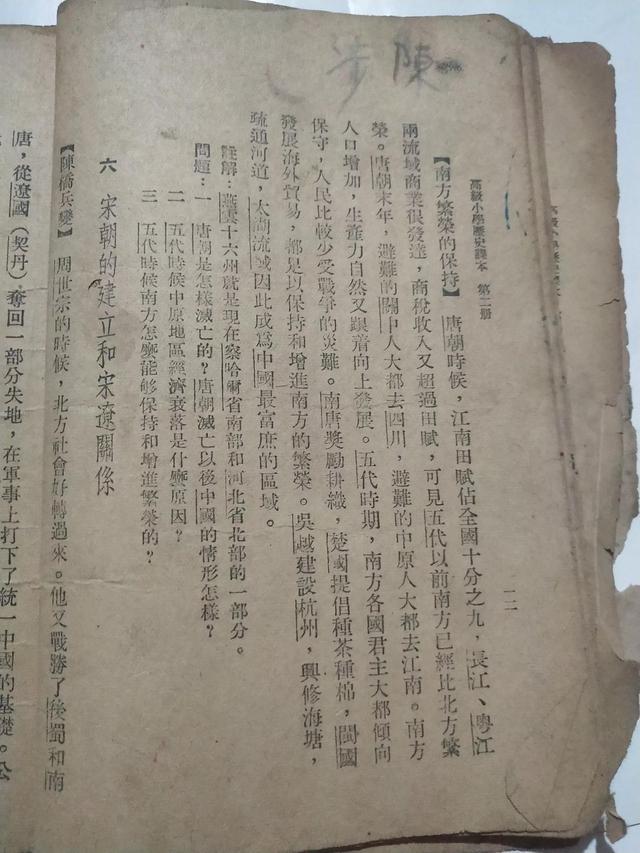 陳
高級小學歷史課本　第二册
一二
【南方繁榮的保持】　唐朝時候，江南田賦佔全國十分之九，長江、粵江
兩流域商業很發達，商稅收入又超過田賦，可見五代以前南方已經比北方繁
榮。唐朝末年，避難的關中人大都去四川，避難的中原人大都去江南。南方
人口增加，生產力自然又跟着向上發展。五代時期，南方各國君主大都傾向
保守，人民比較少受戰爭的災難。南唐獎勵耕織，楚國提倡種茶種棉，閩國
發展海外貿易，都足以保持和增進南方的繁榮。吳越建設杭州，興修海塘，
疏通河道，太湖流域因此成爲中國最富庶的區域。
註解：燕雲十六州就是現在察哈爾省南部和河北省北部的一部分。
問題：一　唐朝是怎樣滅亡的？唐朝滅亡以後中國的情形怎樣？
二　五代時候中原地區經濟衰落是什麼原因？
三　五代時候南方怎麼能够保持和增進繁榮的？
六　宋朝的建立和宋遼關係
【陳橋兵變】　周世宗的時候，北方社會好轉過來。他又戰勝了後蜀和南
唐，從遼國（契丹）奪回一部分失地，在軍事上打下了統一中國的基礎。公